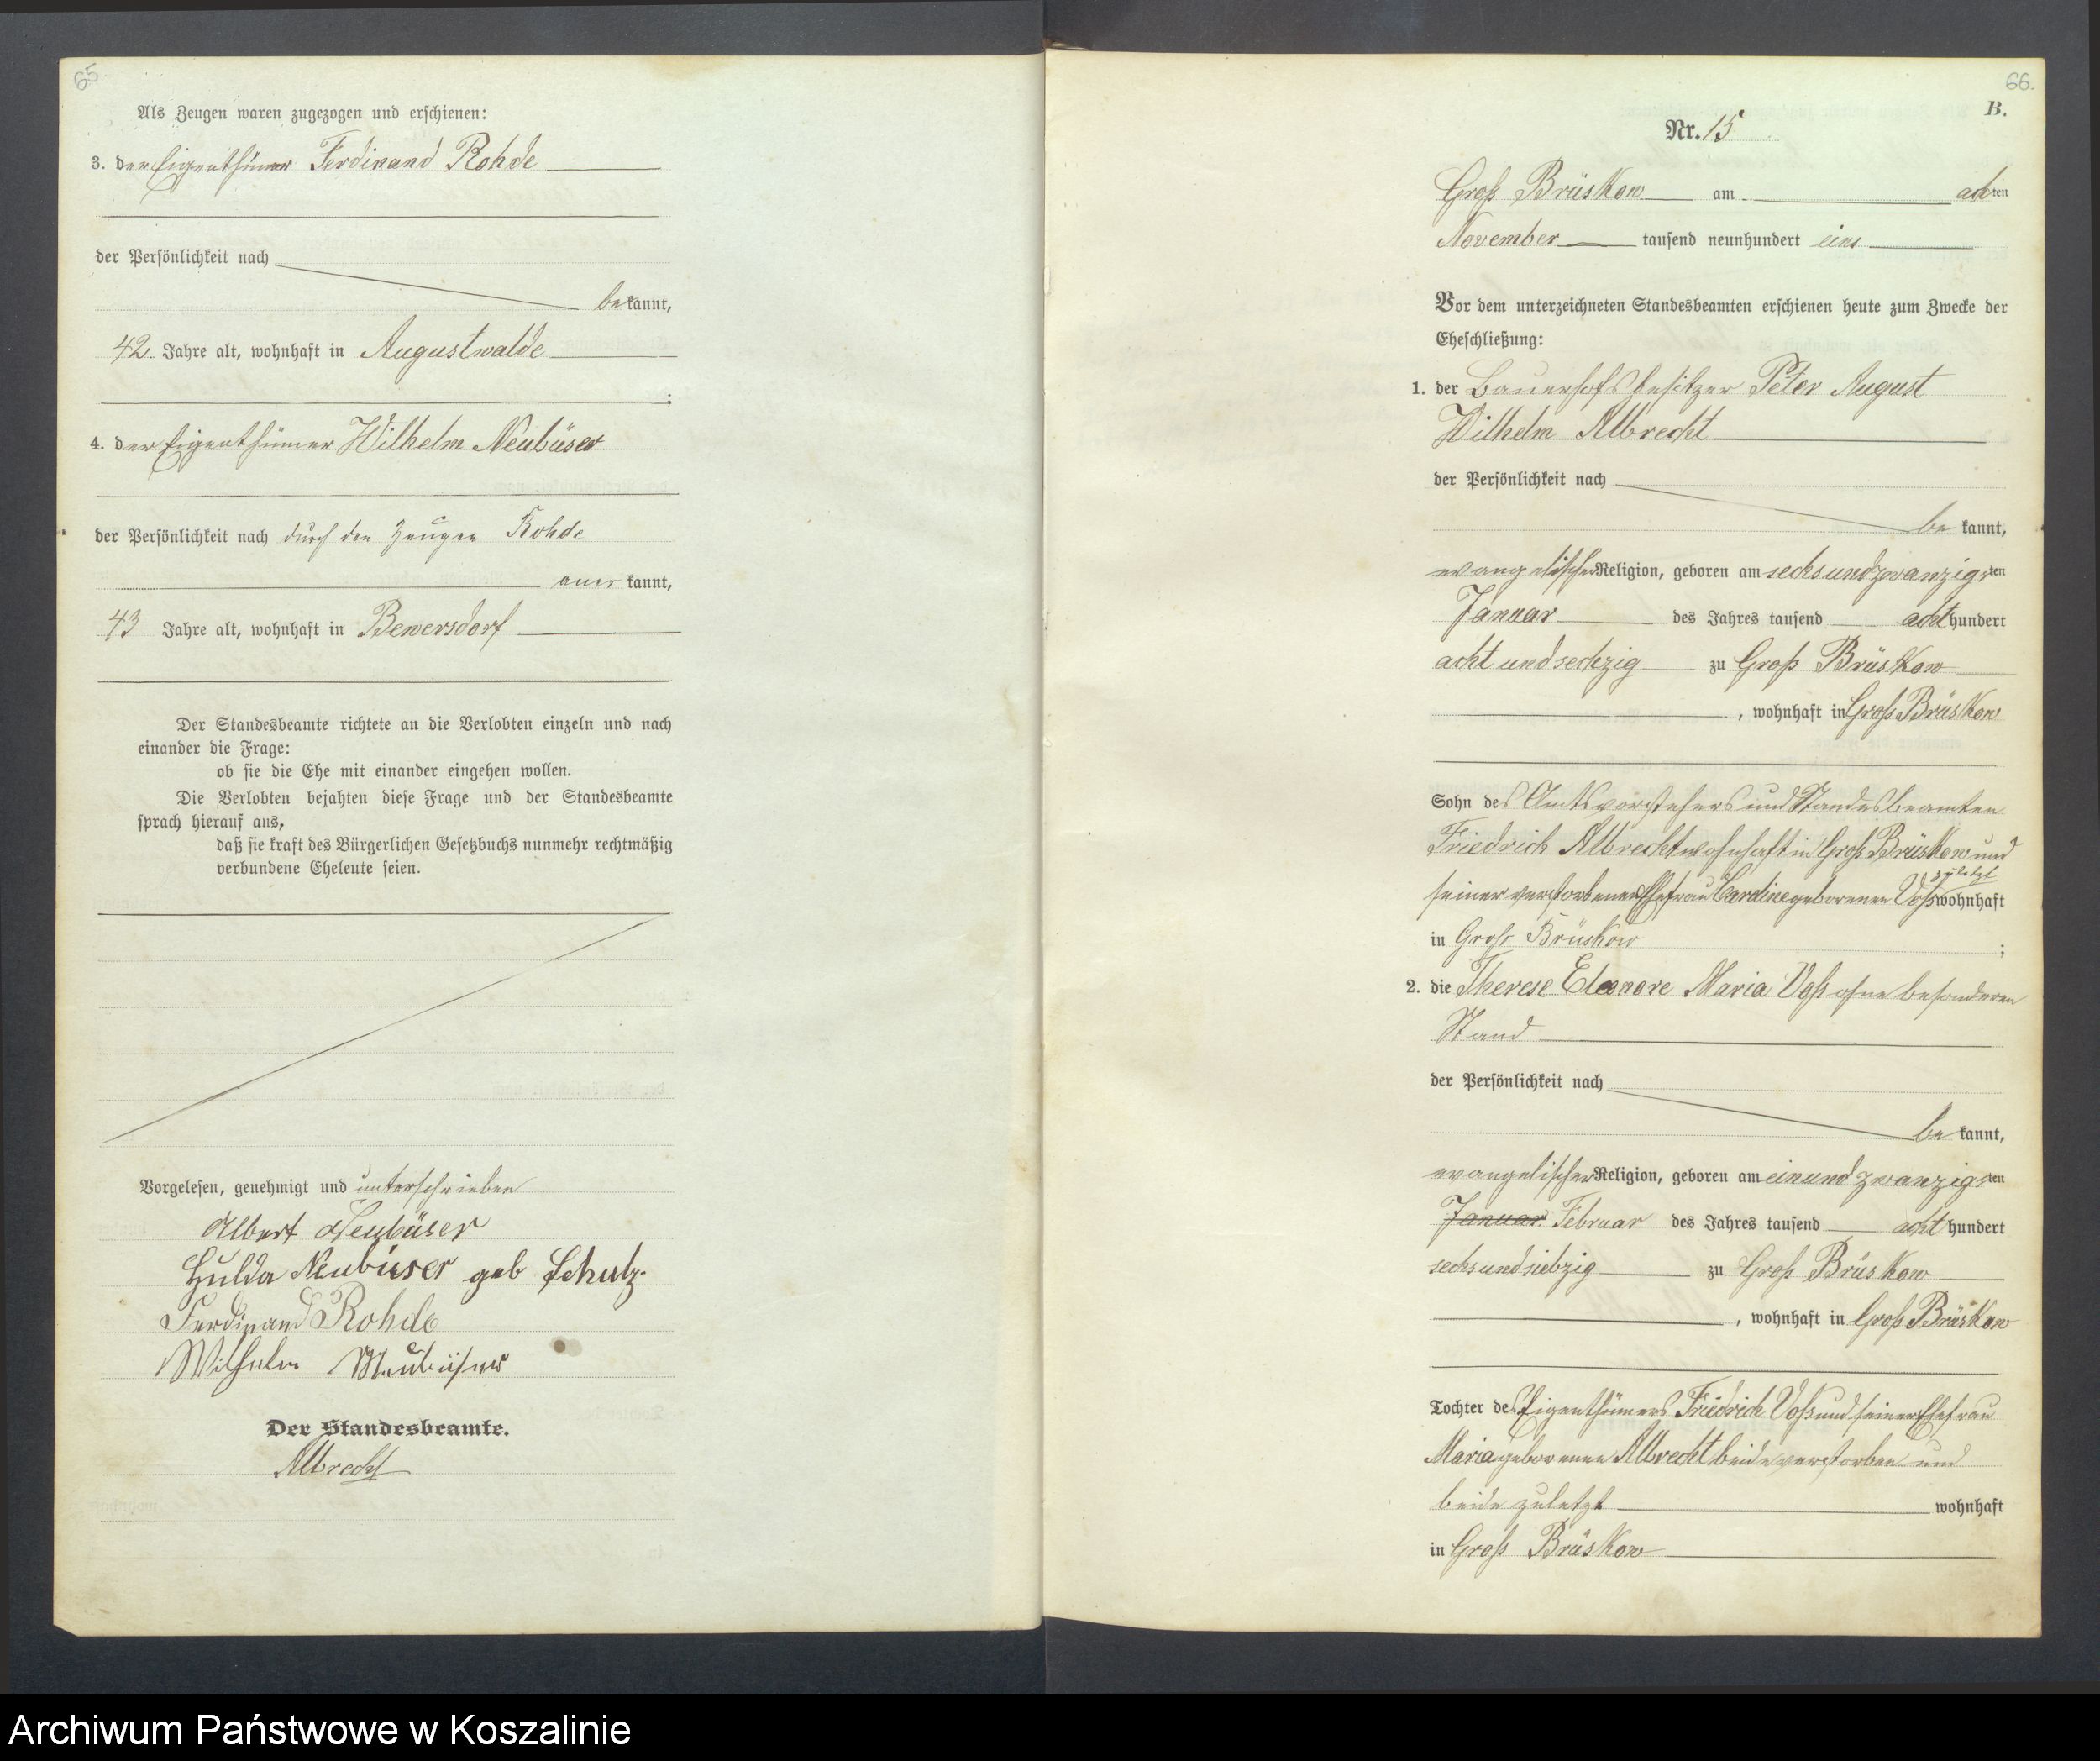 65
Als Zeugen waren zugezogen und erschienen:
3. der Eigenthümer Ferdinand Rohde
der Persönlichkeit nach
bekannt,
42 Jahre alt, wohnhaft in Augustwalde
;
4. der Eigenthümer Wilhelm Neubüser
der Persönlichkeit nach durch den Zeugen Rohde
anerkannt,
43 Jahre alt, wohnhaft in Bewersdorf
Der Standesbeamte richtete an die Verlobten einzeln und nach
einander die Frage:
ob sie die Ehe mit einander eingehen wollen.
Die Verlobten bejahten diese Frage und der Standesbeamte
sprach hierauf aus,
daß sie kraft des Bürgerlichen Gesetzbuchs nunmehr rechtmäßig
verbundene Eheleute seien.
Vorgelesen, genehmigt und unterschrieben
Albert Neubüser
Hulda Neubüser geb Schulz.
Ferdinand Rohde
Wilhelm Neubüser
Der Standesbeamte.
Albrecht
66.
B.
Nr. 15
Groß Brüskow am achten
November tausend neunhundert eins
Vor dem unterzeichneten Standesbeamten erschienen heute zum Zwecke der
Eheschließung:
1. der Bauerhofsbesitzer Peter August
Wilhelm Albrecht
der Persönlichkeit nach
bekannt,
evangelischer Religion, geboren am sechsundzwanzigsten
Januar des Jahres tausend achthundert
acht und sechzig zu Groß Brüskow
, wohnhaft in Groß Brüskow
Sohn des Amtsvorstehers und Standesbeamten
Friedrich Albrecht wohnhaft in Groß Brüskow und
zuletzt
seiner verstorbenen Ehefrau Cardine geborenen Voß wohnhaft
in Groß Brüskow ;
2. die Therese Eleonore Maria Voß ohne besonderen
Stand
der Persönlichkeit nach
bekannt,
evangelischer Religion, geboren am einundzwanzigsten
Januar Februar des Jahres tausend achthundert
sechsundsiebzig zu Groß Brüskow
, wohnhaft in Groß Brüskow
Tochter des Eigenthümers Friedrich Voß und seiner Ehefrau
Maria geborenen Albrecht beide verstorben und
beide zuletzt wohnhaft
in Groß Brüskow
Archiwum Państwowe w Koszalinie